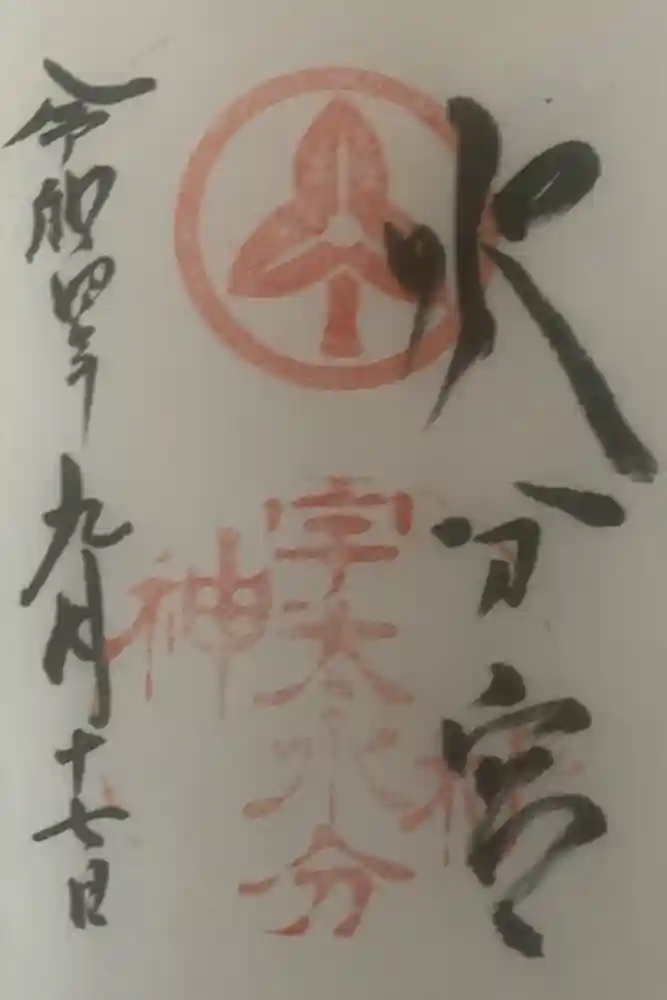 水分宮
宇太水分
神
令和四年九月十七日